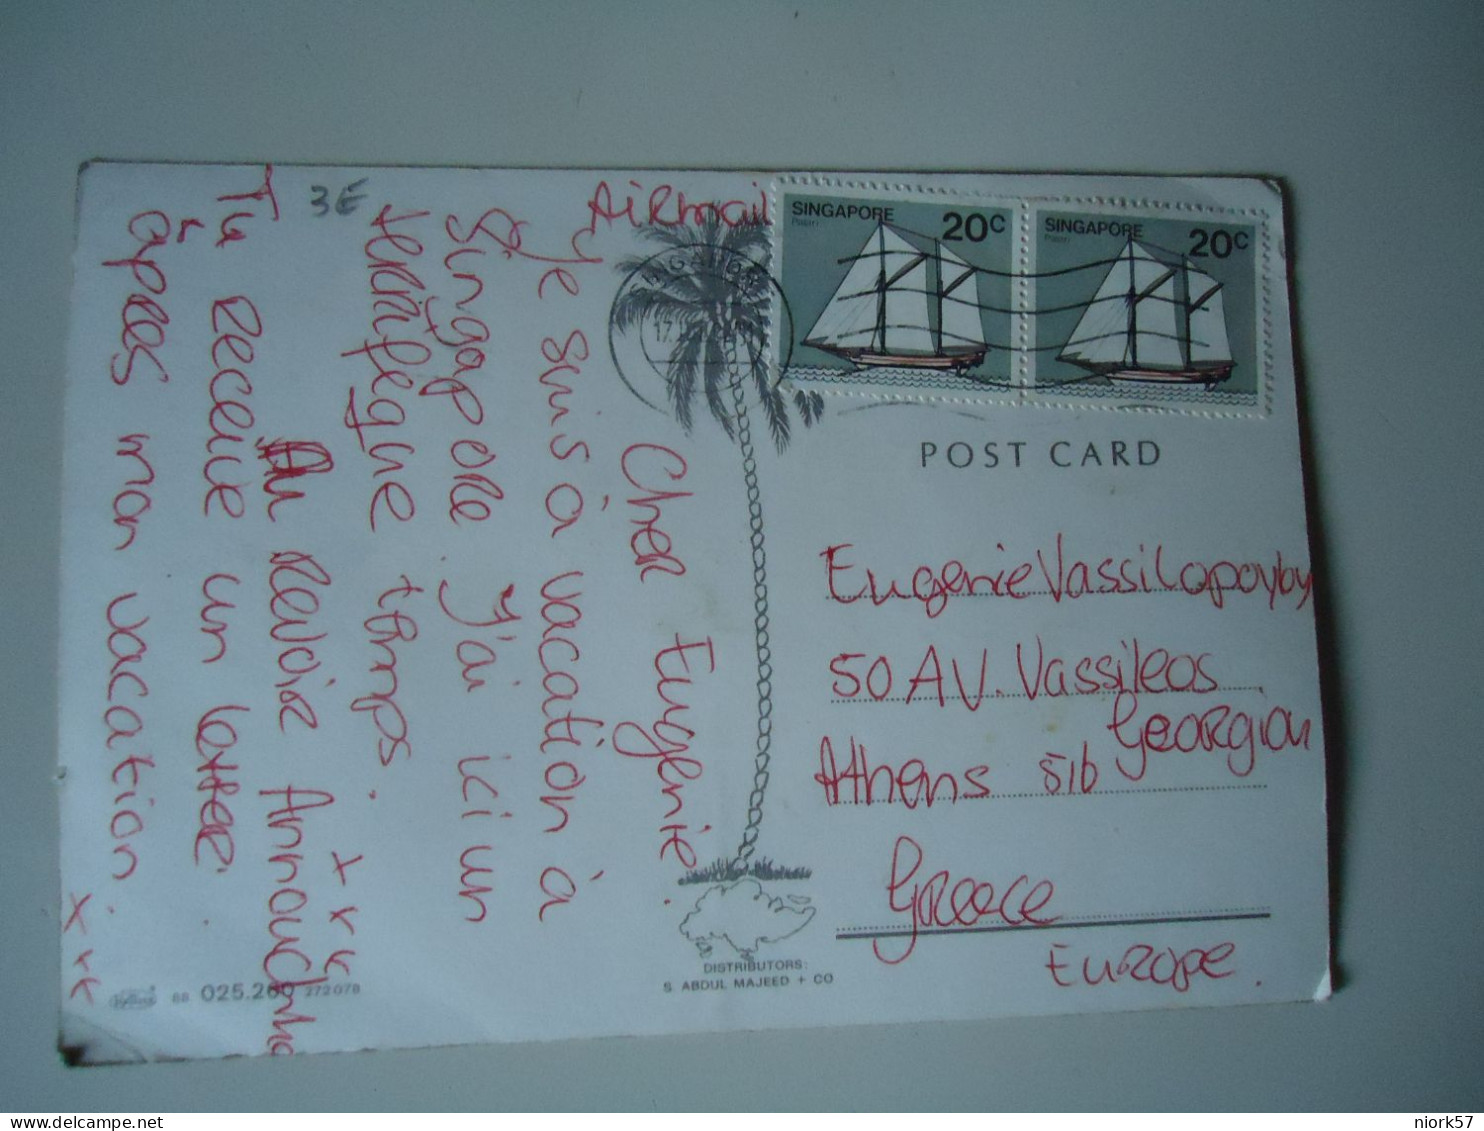 Airmail
SINGAPORE
20c
SINGAPORE
20c
SINGAPORE
17.
3E
POST CARD
Cher Eugenie.
Je suis à vacation à
Singapore. J'ai ici un
terrifique temps.
Tu receive un letter
âpres mon vacation.
Au Revoir
x x x x
x x x
Eugenie Vassilopoyloy
50 AV. Vassileos
Georgiou
Athens 516
Greece
Europe.
DISTRIBUTORS:
S. ABDUL MAJEED + CO
BB 025.260 272078
niork57